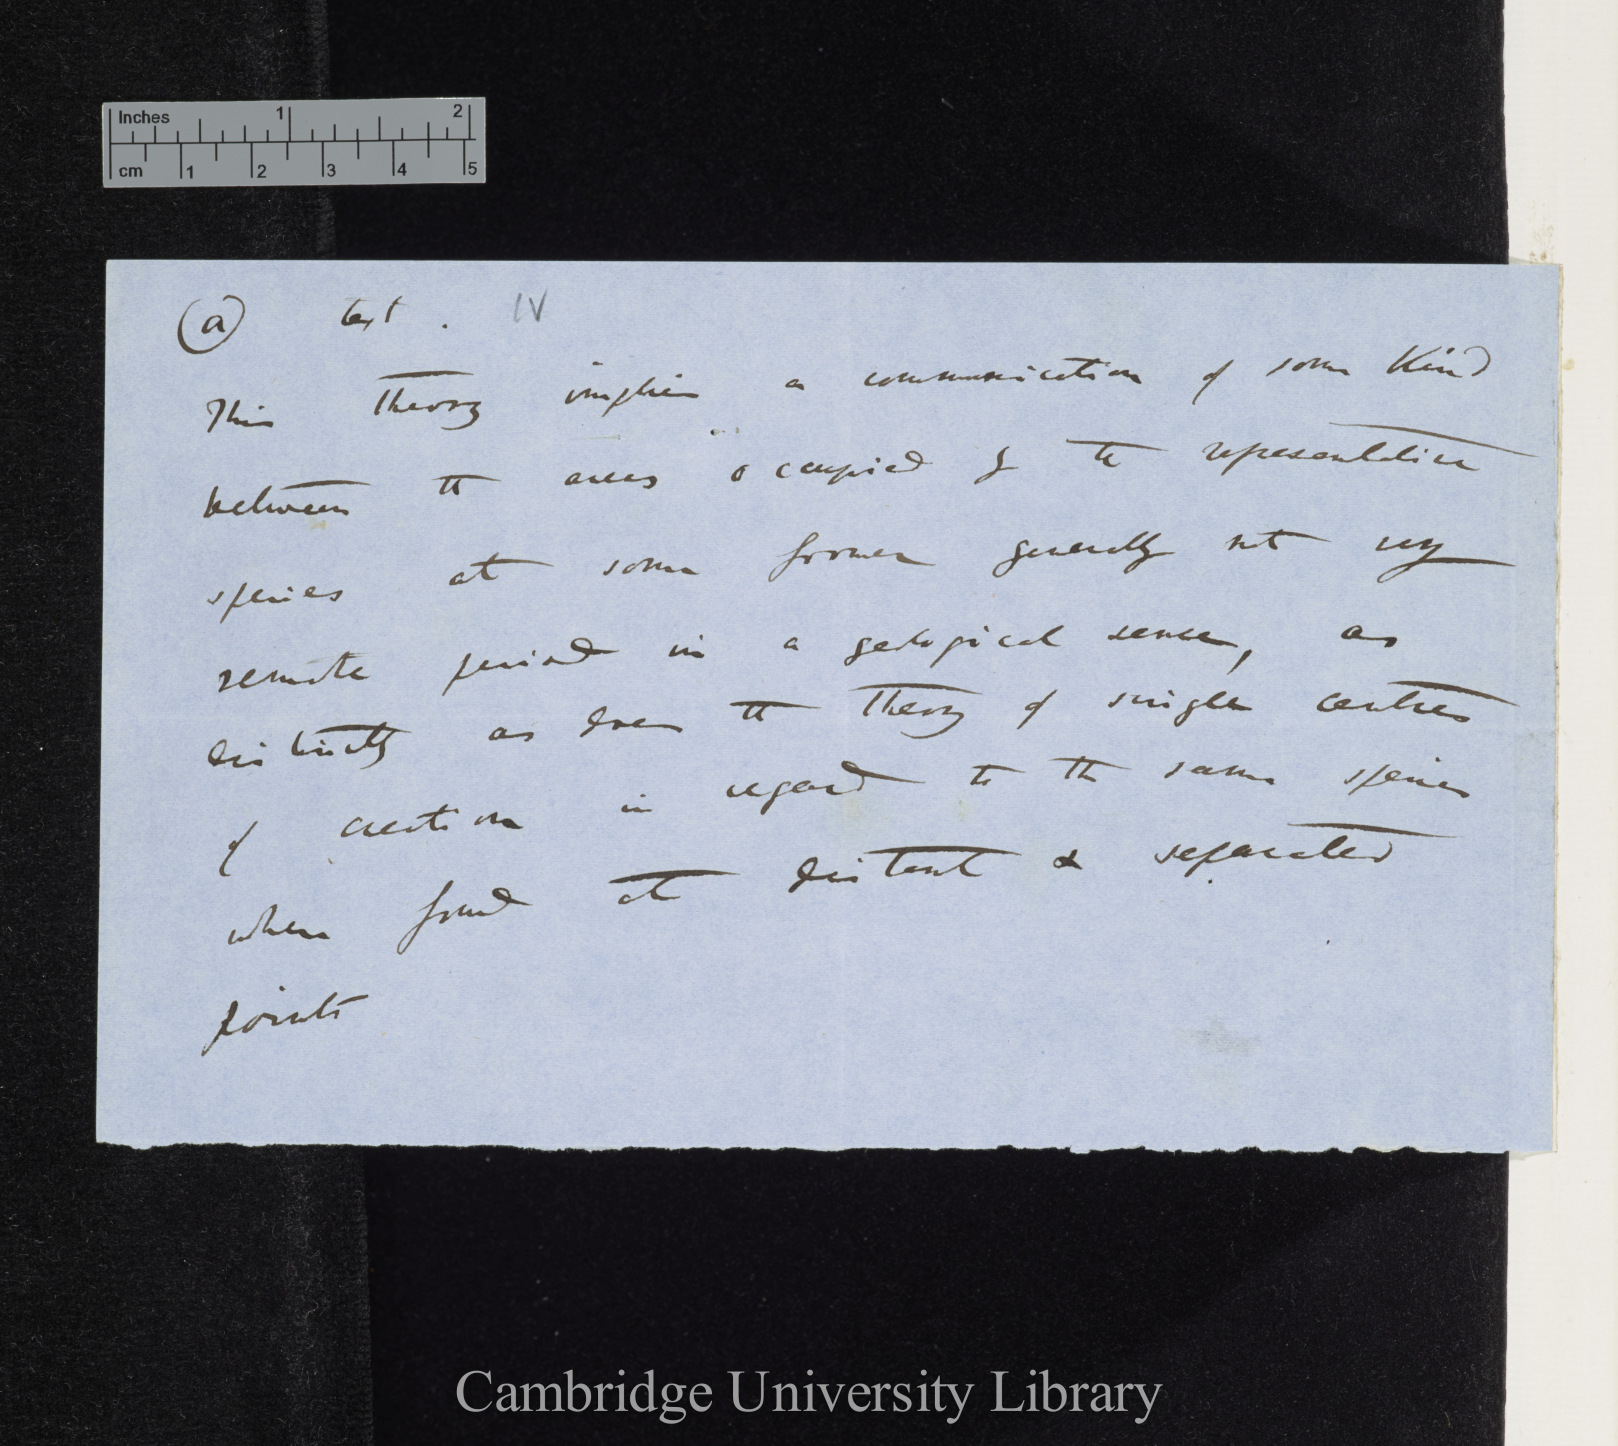 Inches 1 2
cm 1 2 3 4 5
(a) text. IV
This theory implies a communication of some kind
between the areas occupied by the representative
species at some former generally not very
remote period in a geological sense, as
distinctly as does the theory of single centres
of creation in regard to the same species
when found at distant & separated
points
Cambridge University Library